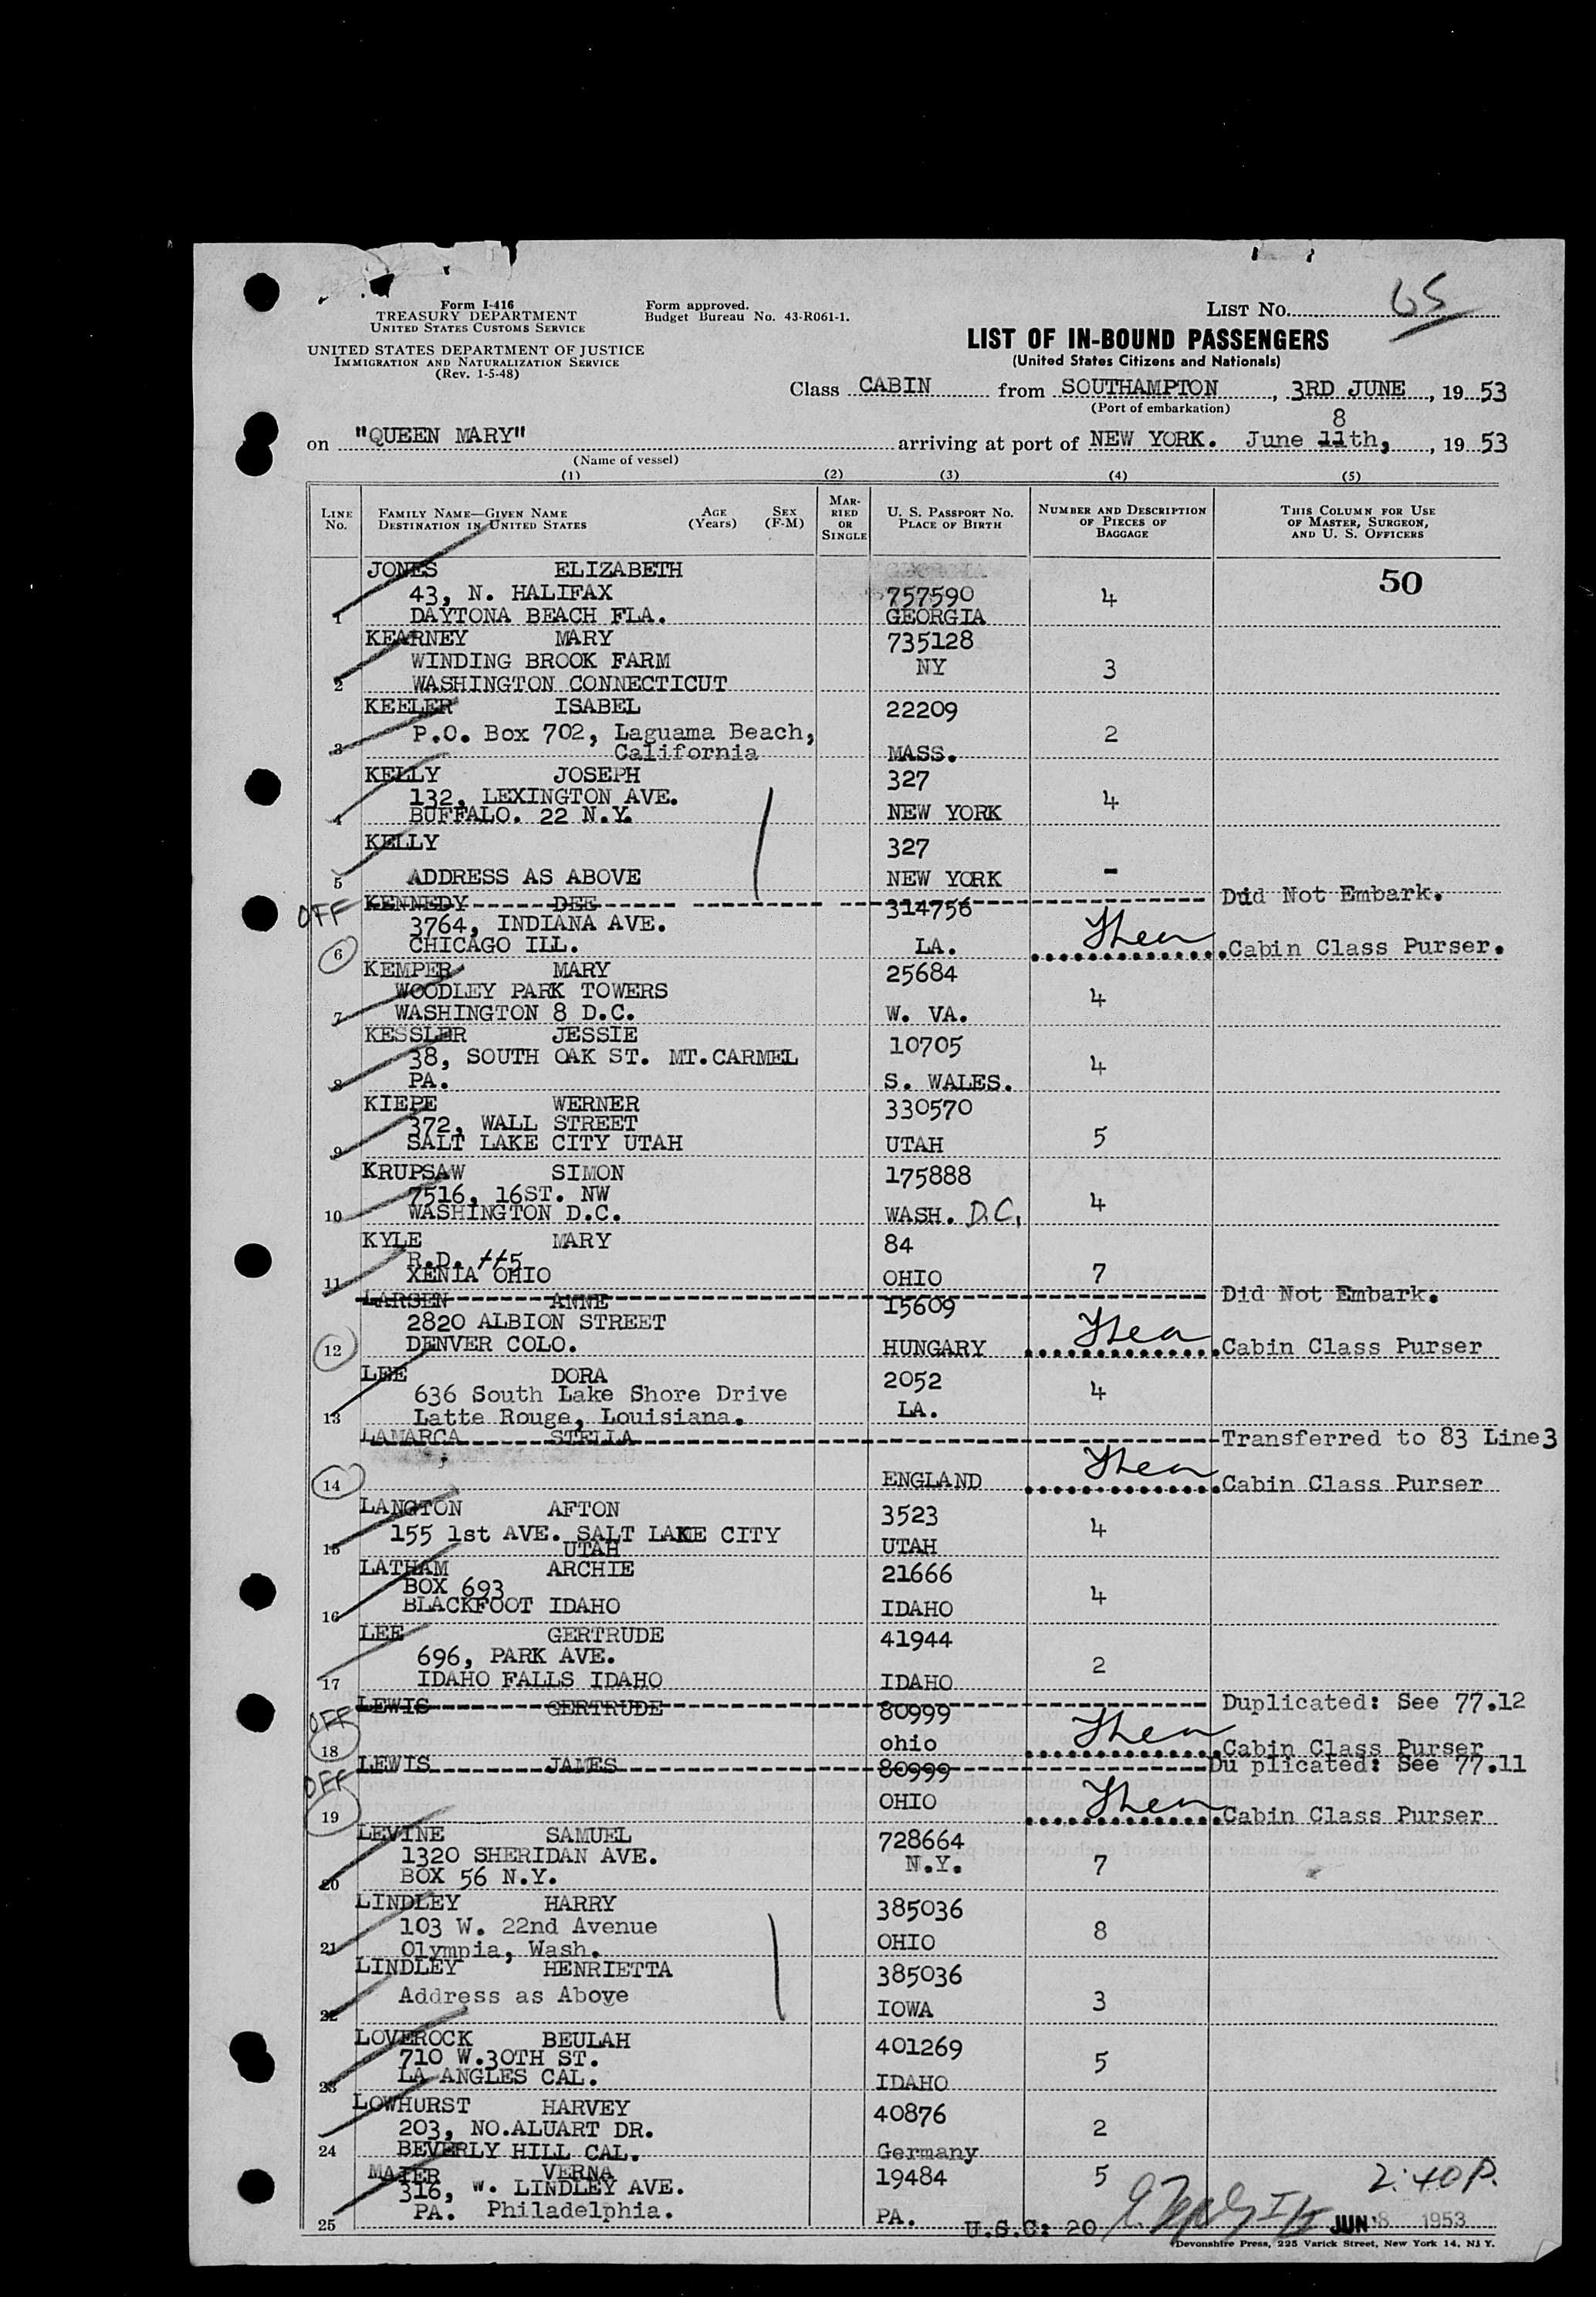 Form I-416
TREASURY DEPARTMENT
UNITED STATES CUSTOMS SERVICE
UNITED STATES DEPARTMENT OF JUSTICE
IMMIGRATION AND NATURALIZATION SERVICE
(Rev. 1-5-48)
Form approved.
Budget Bureau No. 43-R061-1.
LIST No. 65
LIST OF IN-BOUND PASSENGERS
(United States Citizens and Nationals)
Class CABIN from SOUTHAMPTON, 3RD JUNE, 1953
(Port of embarkation)
8
on "QUEEN MARY" arriving at port of NEW YORK. June 11th, 1953
(Name of vessel)
(1) (2) (3) (4) (5)
LINE No.
FAMILY NAME—GIVEN NAME
DESTINATION IN UNITED STATES
AGE (Years)
SEX (F-M)
MARRIED OR SINGLE
U. S. PASSPORT No.
PLACE OF BIRTH
NUMBER AND DESCRIPTION OF PIECES OF BAGGAGE
THIS COLUMN FOR USE OF MASTER, SURGEON, AND U. S. OFFICERS
JONES ELIZABETH GEORGIA 50
43, N. HALIFAX 757590 4
1 DAYTONA BEACH FLA. GEORGIA
KEARNEY MARY 735128
WINDING BROOK FARM NY 3
2 WASHINGTON CONNECTICUT
KEELER ISABEL 22209
P.O. Box 702, Laguama Beach, 2
3 California MASS.
KELLY JOSEPH 327
132, LEXINGTON AVE. 4
4 BUFFALO. 22 N.Y. NEW YORK
KELLY 327
5 ADDRESS AS ABOVE NEW YORK -
OFF KENNEDY DEE 314756 Did Not Embark.
3764, INDIANA AVE.
6 CHICAGO ILL. LA. Cabin Class Purser.
KEMPER MARY 25684
WOODLEY PARK TOWERS 4
7 WASHINGTON 8 D.C. W. VA.
KESSLER JESSIE 10705
38, SOUTH OAK ST. MT.CARMEL 4
8 PA. S. WALES.
KIEPE WERNER 330570
372, WALL STREET 5
9 SALT LAKE CITY UTAH UTAH
KRUPSAW SIMON 175888
7516, 16ST. NW 4
10 WASHINGTON D.C. WASH. D.C.
KYLE MARY 84
R.D. ##5 7
11 XENIA OHIO OHIO
LARSEN ANNE 15609 Did Not Embark.
2820 ALBION STREET
12 DENVER COLO. HUNGARY Cabin Class Purser
LEE DORA 2052
636 South Lake Shore Drive 4
13 Latte Rouge, Louisiana. LA.
LAMARCA STELLA Transferred to 83 Line3
14 ENGLAND Cabin Class Purser
LANGTON AFTON 3523
155 1st AVE. SALT LAKE CITY 4
15 UTAH UTAH
LATHAM ARCHIE 21666
BOX 693 4
16 BLACKFOOT IDAHO IDAHO
LEE GERTRUDE 41944
696, PARK AVE. 2
17 IDAHO FALLS IDAHO IDAHO
OFF LEWIS GERTRUDE 80999 Duplicated: See 77.12
18 ohio Cabin Class Purser
OFF LEWIS JAMES 80999 Du plicated: See 77.11
19 OHIO Cabin Class Purser
LEVINE SAMUEL 728664
1320 SHERIDAN AVE. N.Y. 7
20 BOX 56 N.Y.
LINDLEY HARRY 385036
103 W. 22nd Avenue 8
21 Olympia, Wash. OHIO
LINDLEY HENRIETTA 385036
22 Address as Above IOWA 3
LOVEROCK BEULAH 401269
710 W.30TH ST. 5
23 LA ANGLES CAL. IDAHO
LOWHURST HARVEY 40876
203, NO.ALUART DR. 2
24 BEVERLY HILL CAL. Germany
MAIER VERNA 19484 5 2:40P.
316, W. LINDLEY AVE.
25 PA. Philadelphia. PA. U.S.C: 20 JUN 8 1953
Devonshire Press, 225 Varick Street, New York 14, N.Y.